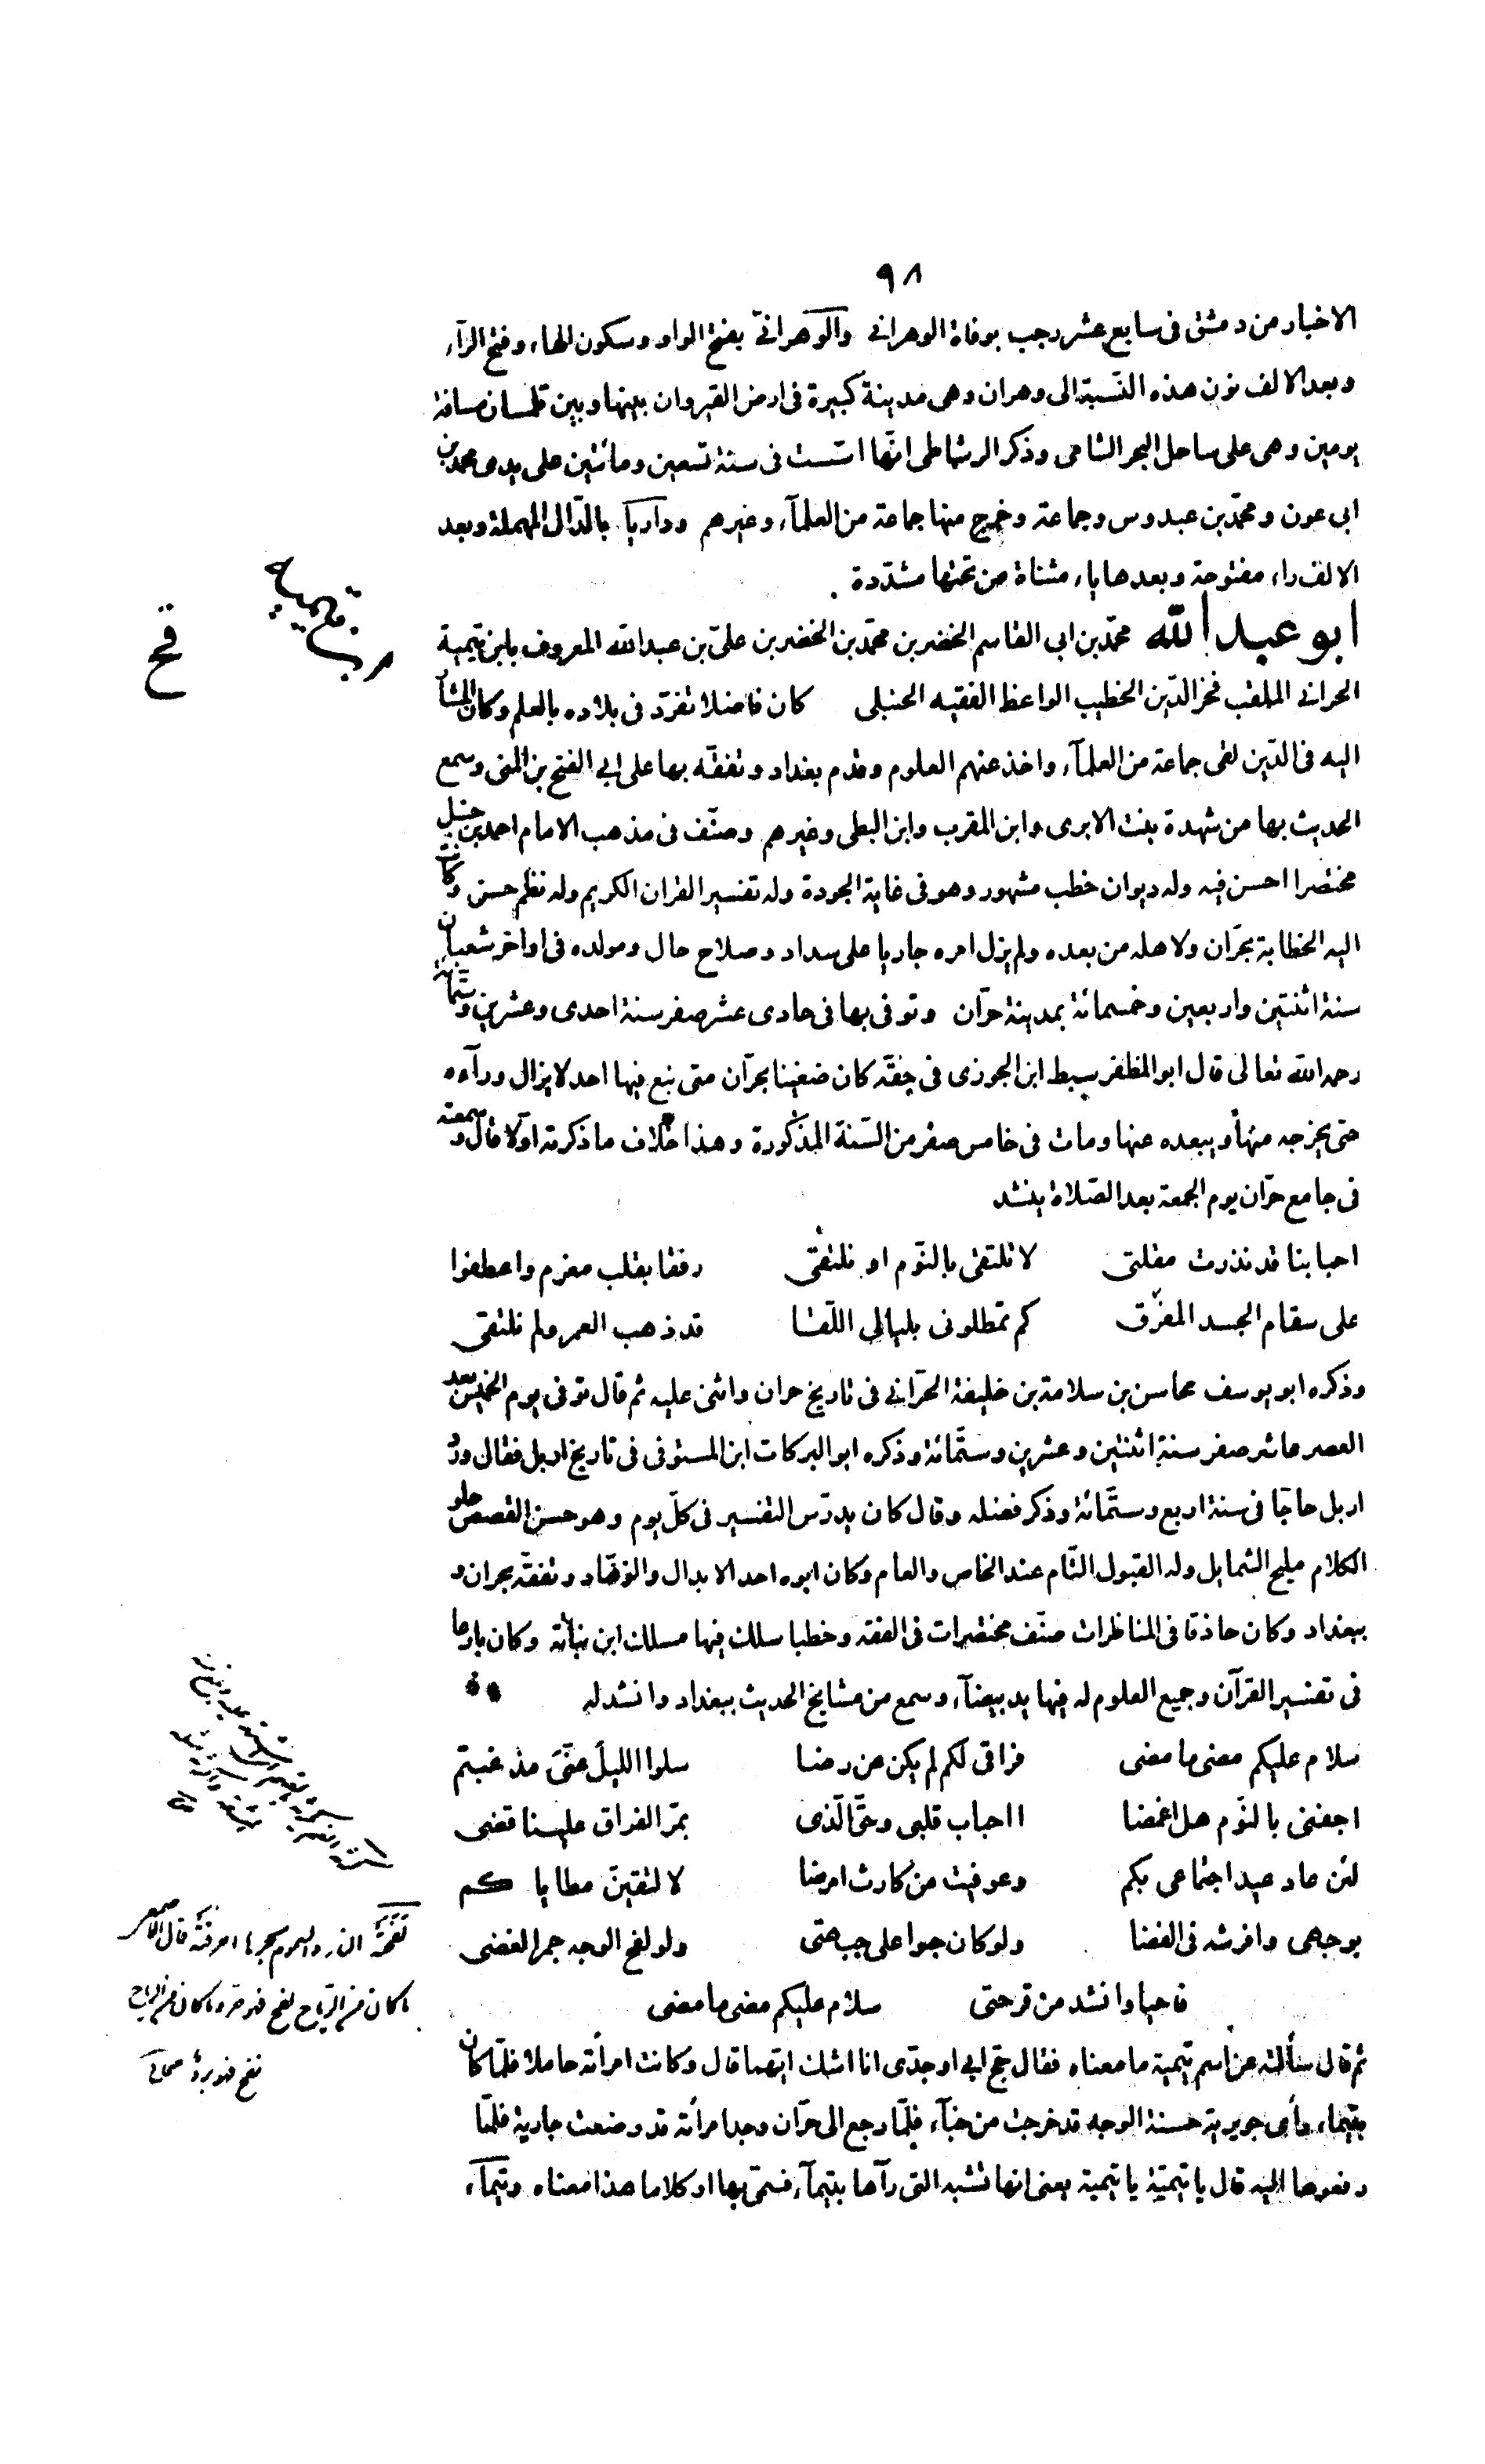 ٩٨
الاخبار من دمشق فى سابع عشر رجب بوفاة الوهرانى والوهرانىّ بفتح الواو وسكون الهاء وفتح الرآء
وبعد الالف نون هذه النسبة الى وهران وهى مدينة كبيرة فى ارض القيروان بينها وبين تلمسان مسافة
يومين وهى على ساحل البحر الشامى وذكر الرشاطى انها اسّست فى سنة تسعين ومائتين على يدى محمد بن
ابى عون ومحمّد بن عبدوس وجماعة وخرج منها جماعة من العلمآء وغيرهم وداريا بالدّال المهملة وبعد
الالف راء مفتوحة وبعدها ياء مثناة من تحتها مشدّدة
ابو عبد الله محمّد بن ابى القاسم الخضر بن محمّد بن الخضر بن علىّ بن عبد الله المعروف بابن تيمية
الحرانى الملقب فخر الدّين الخطيب الواعظ الفقيه الحنبلى كان فاضلا تفرّد فى بلاده بالعلم وكان المشار
اليه فى الدّين لقى جماعة من العلمآء واخذ عنهم العلوم وقدم بغداد وتفقّه بها على ابى الفتح بن المنى وسمع
الحديث بها من شهدة بنت الابرى وابن المقرب وابن البطى وغيرهم وصنّف فى مذهب الامام احمد بن حنبل
مختصرا احسن فيه وله ديوان خطب مشهور وهو فى غاية الجودة وله تفسير القران الكريم وله نظم حسن وكانت
اليه الخطابة بحرّان ولاهله من بعده ولم يزل امره جاريا على سداد وصلاح حال ومولده فى اواخر شعبان
سنة اثنتين واربعين وخمسمائة بمدينة حرّان وتوفى بها فى حادى عشر صفر سنة احدى وعشرين وستّمائة
رحمه الله تعالى قال ابو المظفر سبط ابن الجوزى فى حقّه كان ضنينا بحرّان متى نبع فيها احد لا يزال ورآءه
حتى يخرجه منها ويبعده عنها ومات فى خامس صفر من السّنة المذكورة وهذا خلاف ما ذكرته اوّلا قال وسمعته
فى جامع حرّان يوم الجمعة بعد الصّلاة ينشد
احبابنا قد نذرت مقلتى لا تلتقى بالنّوم او نلتقى رفقا بقلب مغرم واعطفوا
على سقام الجسد المغرّق كم تمطلونى بليالى اللّقا قد ذهب العمر ولم نلتقى
وذكره ابو يوسف محاسن بن سلامة بن خليفة الحرّانى فى تاريخ حران واثنى عليه ثم قال توفى يوم الخميس بعد
العصر عاشر صفر سنة اثنتين وعشرين وستّمائة وذكره ابو البركات ابن المستوفى فى تاريخ اربل فقال ورد
اربل حاجّا فى سنة اربع وستّمائة وذكر فضله وقال كان يدرّس التفسير فى كلّ يوم وهو حسن القصص حلو
الكلام مليح الشمايل وله القبول التّام عند الخاص والعام وكان ابوه احد الابدال والزهّاد وتفقّه بحران و
ببغداد وكان حاذقا فى المناظرات صنّف مختصرات فى الفقه وخطبا سلك فيها مسلك ابن نباتة وكان بارعا
فى تفسير القرآن وجميع العلوم له فيها يد بيضآء وسمع من مشايخ الحديث ببغداد وانشد له
سلام عليكم مضى ما مضى فراقى لكم لم يكن عن رضا سلوا الليل عنّى مذ غبتم
اجفنى بالنّوم هل اغمضا ااحباب قلبى وحقّ الّذى بمرّ الفراق علينا قضى
لئن عاد عيد اجتماعى بكم وعوفيت من كارث امرضا لالتقينّ مطاياكم
بوجهى وافرشه فى الفضا ولو كان جوا على جبهتى ولو لفح الوجه جمر الغضى
فاحيا وانشد من قرحتى سلام عليكم مضى ما مضى
ثم قال سألته عن اسم تيمية ما معناه فقال حج ابى او جدّى انا اشك ايّهما قال وكانت امرأته حاملا فلمّا كان
بتيماء رأى جويرية حسنة الوجه قد خرجت من خبآء فلمّا رجع الى حرّان وجد امرأته قد وضعت جارية فلمّا
رفعوها اليه قال يا تيميّة يا تيمية يعنى انها تشبه التى رآها بتيمآء فسمّى بها او كلاما هذا معناه وتيمآء
لفحته النار والسموم بحرها احرقته قال الاصمعى
ما كان من الرّياح لفح فهو حر وما كان من الرياح
نفح فهو برد صحاح